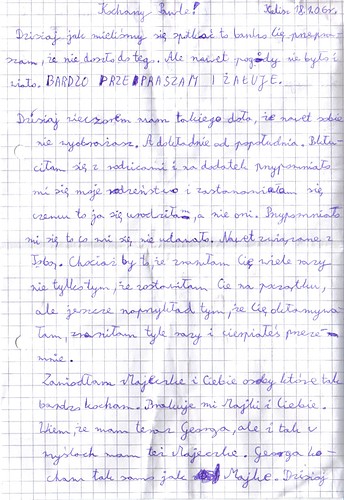 Kochany Pawle! 18.2.06r.
Dzisiaj jak mieliśmy się spotkać to bardzo Cię przepra-
szam, że nie doszło do tego. Ale nawet pogody nie było i
wiało. BARDZO PRZEPRASZAM I ŻAŁUJĘ.
Dzisiaj wieczorem mam takiego doła, że nawet sobie
nie wyobrażasz. A dokładnie od popołudnia. Pokłu-
ciłam się z rodzicami i na dodatek przypomniało
mi się moje rodzeństwo i zastanawiałam się
czemu to ja się urodziłam, a nie oni. Przypomniało
mi się to co mi się nie udawało. Nawet związane z
Tobą. Chociaż by to, że zraniłam Cię wiele razy
nie tylko tym, że zostawiłam Cię na początku,
ale jeszcze na przykład tym, że Cię okłamywa-
łam, zraniłam tyle razy i cierpiałeś przeze
mnie.
Zawiodłam Majeczkę i Ciebie osoby które tak
bardzo kocham. Brakuje mi Majki i Ciebie.
Wiem, że mam teraz Georga, ale i tak w
myślach mam też Majeczkę. Georga ko-
cham tak samo jak Majkę. Dzisiaj